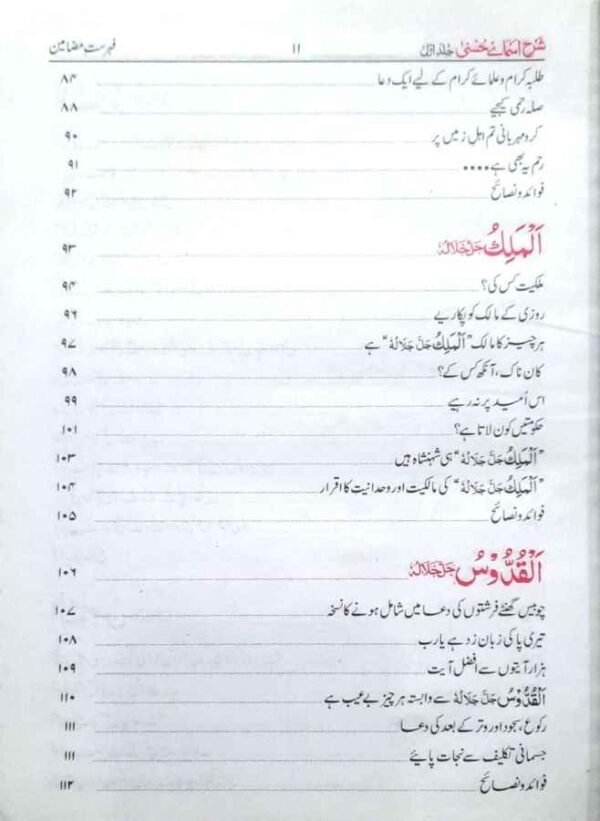 شرح اسمائے حسنیٰ جلد اول ۱۱ فہرست مضامین
طلبہ کرام و علمائے کرام کے لیے ایک دعا ۸۴
صلہ رحمی کیجیے ۸۸
کرو مہربانی تم اہل زمیں پر ۹۰
رحم یہ بھی ہے.... ۹۱
فوائد و نصائح ۹۲
اَلْمَلِکُ جَلَّ جَلَالُہٗ ۹۳
ملکیت کس کی؟ ۹۴
روزی کے مالک کو پکاریے ۹۶
ہر چیز کا مالک ”اَلْمَلِکُ جَلَّ جَلَالُہٗ“ ہے ۹۷
کان ناک، آنکھ کس کے؟ ۹۸
اس اُمید پر نہ رہیے ۹۹
حکومتیں کون لاتا ہے؟ ۱۰۱
”اَلْمَلِکُ جَلَّ جَلَالُہٗ“ ہی شہنشاہ ہیں ۱۰۳
”اَلْمَلِکُ جَلَّ جَلَالُہٗ“ کی مالکیت اور وحدانیت کا اقرار ۱۰۴
فوائد و نصائح ۱۰۵
اَلْقُدُّوْسُ جَلَّ جَلَالُہٗ ۱۰۶
چوبیس گھنٹے فرشتوں کی دعا میں شامل ہونے کا نسخہ ۱۰۷
تیری پاکی زبان زد ہے یارب ۱۰۸
ہزار آیتوں سے افضل آیت ۱۰۹
اَلْقُدُّوْسُ جَلَّ جَلَالُہٗ سے وابستہ ہر چیز بے عیب ہے ۱۱۰
رکوع، سجود اور وتر کے بعد کی دعا ۱۱۱
جسمانی تکلیف سے نجات پائیے ۱۱۱
فوائد و نصائح ۱۱۲